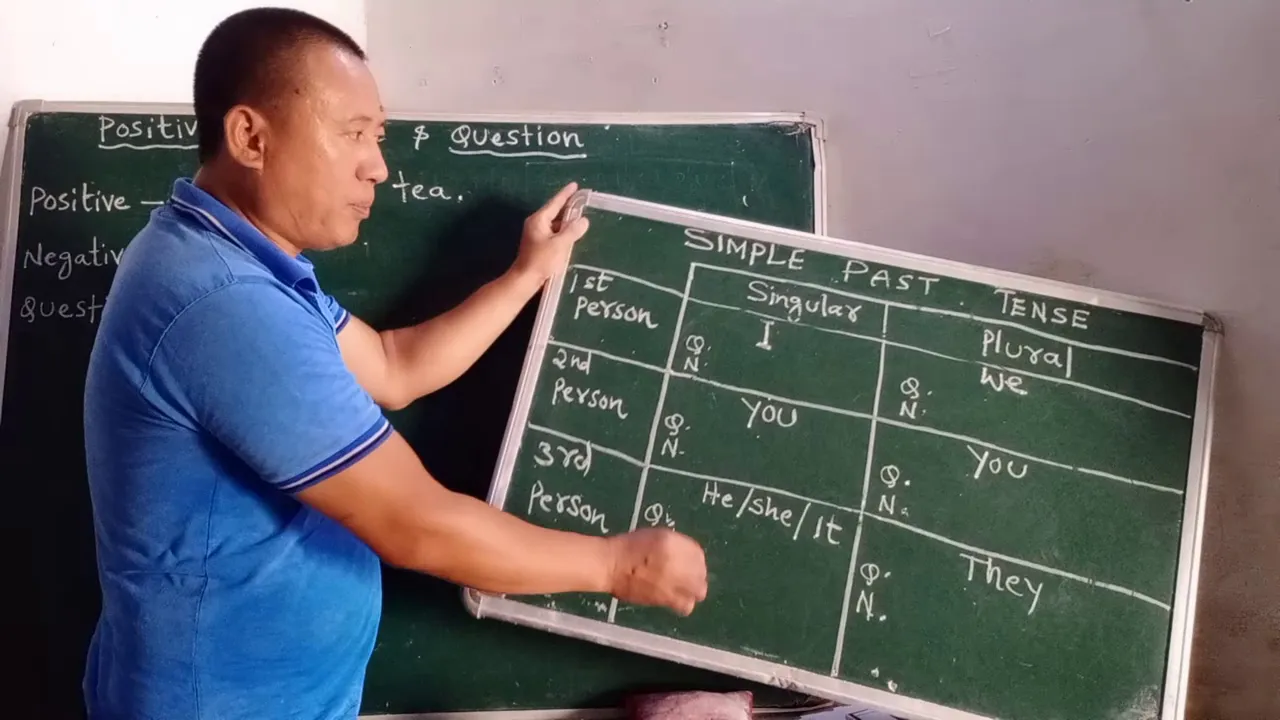 Positiv
& Question
Positive –
tea.
Negativ
Quest
SIMPLE PAST TENSE
Singular
Plural
1st
Person
I
Q.
N.
We
Q.
N.
2nd
Person
You
Q.
N.
You
Q.
N.
3rd
Person
He/she/It
Q.
They
Q.
N.